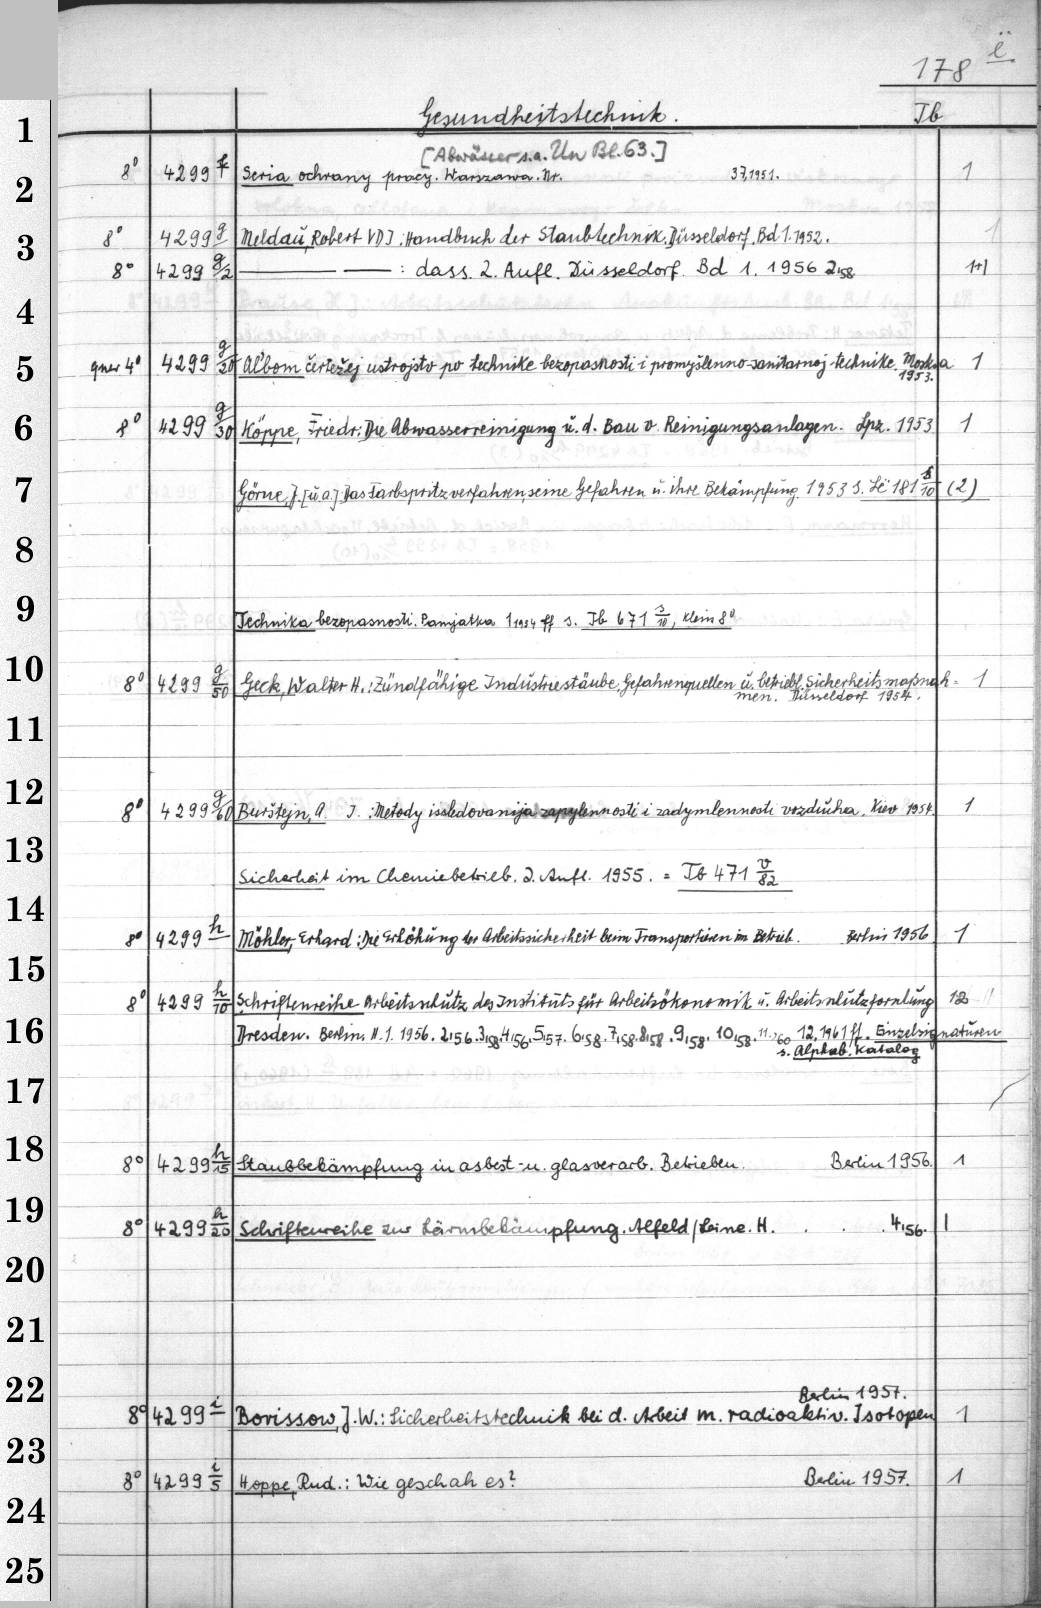 178 ë
Gesundheitstechnik. Tb
[Abwässer s.a. Un Bl. 63.]
8° 4299 f Seria ochrany pracy. Warszawa. Nr. 37,1951. 1
8° 4299 g Meldau, Robert VDI: Handbuch der Staubtechnik, Düsseldorf, Bd 1. 1952. 1
8° 4299 g/2 ——— — : dass. 2. Aufl. Düsseldorf. Bd 1. 1956 2,58 1+1
quer 4° 4299 g/20 Al'bom čertežej ustrojstv po technike bezopasnosti i promyšlenno-sanitarnoj technike. Moskva 1
1953.
8° 4299 g/30 Köppe, Friedr.: Die Abwasserreinigung u. d. Bau v. Reinigungsanlagen. Lpz. 1953 1
Görne, J. [u.a.] Das Farbspritzverfahren seine Gefahren u. ihre Bekämpfung 1953 s. Lë 181 s/10 (2)
Technika bezopasnosti. Pamjatka 1,1934 ff s. Tb 671 s/10, klein 8°
8° 4299 g/50 Geck, Walter H.: Zündfähige Industriestäube, Gefahrenquellen u. betriebl. Sicherheitsmaßnah- 1
men. Düsseldorf 1954.
8° 4299 g/60 Burštejn, A. I.: Metody issledovanija zapylennosti i zadymlennosti vozducha. Kiev 1954. 1
Sicherheit im Chemiebetrieb. 2. Aufl. 1955. = Tb 471 v/82
8° 4299 h Möhler, Erhard: Die Erhöhung der Arbeitssicherheit beim Transportieren im Betrieb. Berlin 1956 1
8° 4299 h/10 Schriftenreihe Arbeitsschutz des Instituts für Arbeitsökonomik u. Arbeitsschutzforschung 12
Dresden. Berlin. H. 1. 1956. 2,56. 3,58. 4,56. 5,57. 6,58. 7,58. 8,58. 9,58. 10,58. 11,'60 12,1961 ff. Einzelsignaturen
s. Alphab. Katalog
8° 4299 h/15 Staubbekämpfung in asbest- u. glasverarb. Betrieben. Berlin 1956. 1
8° 4299 h/20 Schriftenreihe zur Lärmbekämpfung. Alfeld/Leine. H. . . . 4,56. 1
Berlin 1957.
8° 4299 i Borissow, J. W.: Sicherheitstechnik bei d. Arbeit m. radioaktiv. Isotopen 1
8° 4299 i/5 Hoppe, Rud.: Wie geschah es? Berlin 1957. 1
1
2
3
4
5
6
7
8
9
10
11
12
13
14
15
16
17
18
19
20
21
22
23
24
25